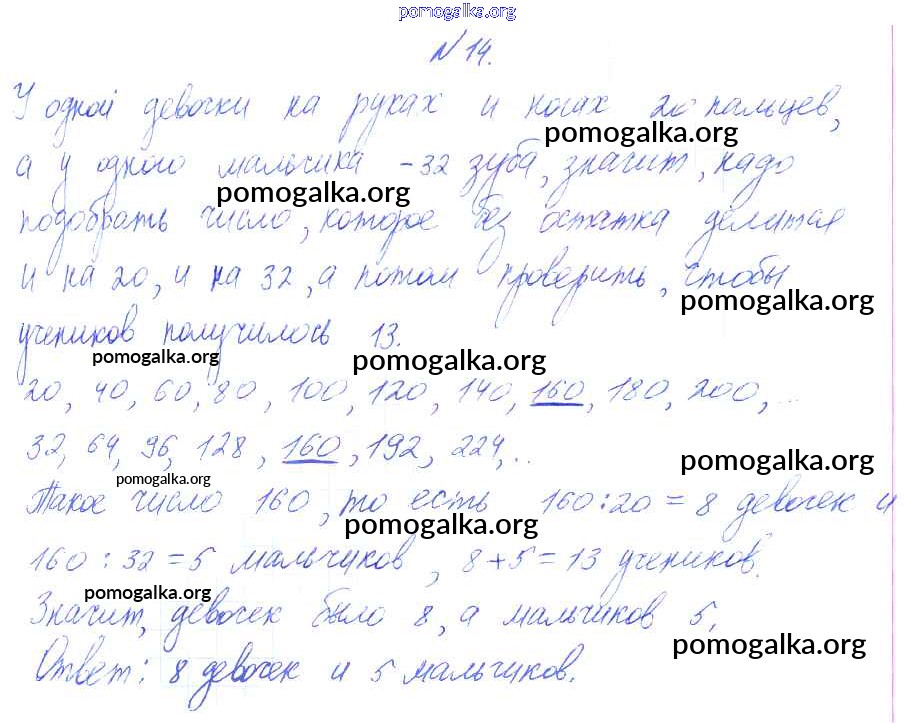 pomogalka.org
N 14.
У одной девочки на руках и ногах 20 пальцев,
pomogalka.org
а у одного мальчика - 32 зуба, значит, надо
pomogalka.org
подобрать число, которое без остатка делится
и на 20, и на 32, а потом проверить, чтобы
pomogalka.org
учеников получилось 13.
pomogalka.org
pomogalka.org
20, 40, 60, 80, 100, 120, 140, 160, 180, 200, ...
32, 64, 96, 128, 160, 192, 224, ..
pomogalka.org
pomogalka.org
Такое число 160, то есть 160 : 20 = 8 девочек и
pomogalka.org
160 : 32 = 5 мальчиков, 8 + 5 = 13 учеников.
pomogalka.org
Значит, девочек было 8, а мальчиков 5.
pomogalka.org
Ответ: 8 девочек и 5 мальчиков.